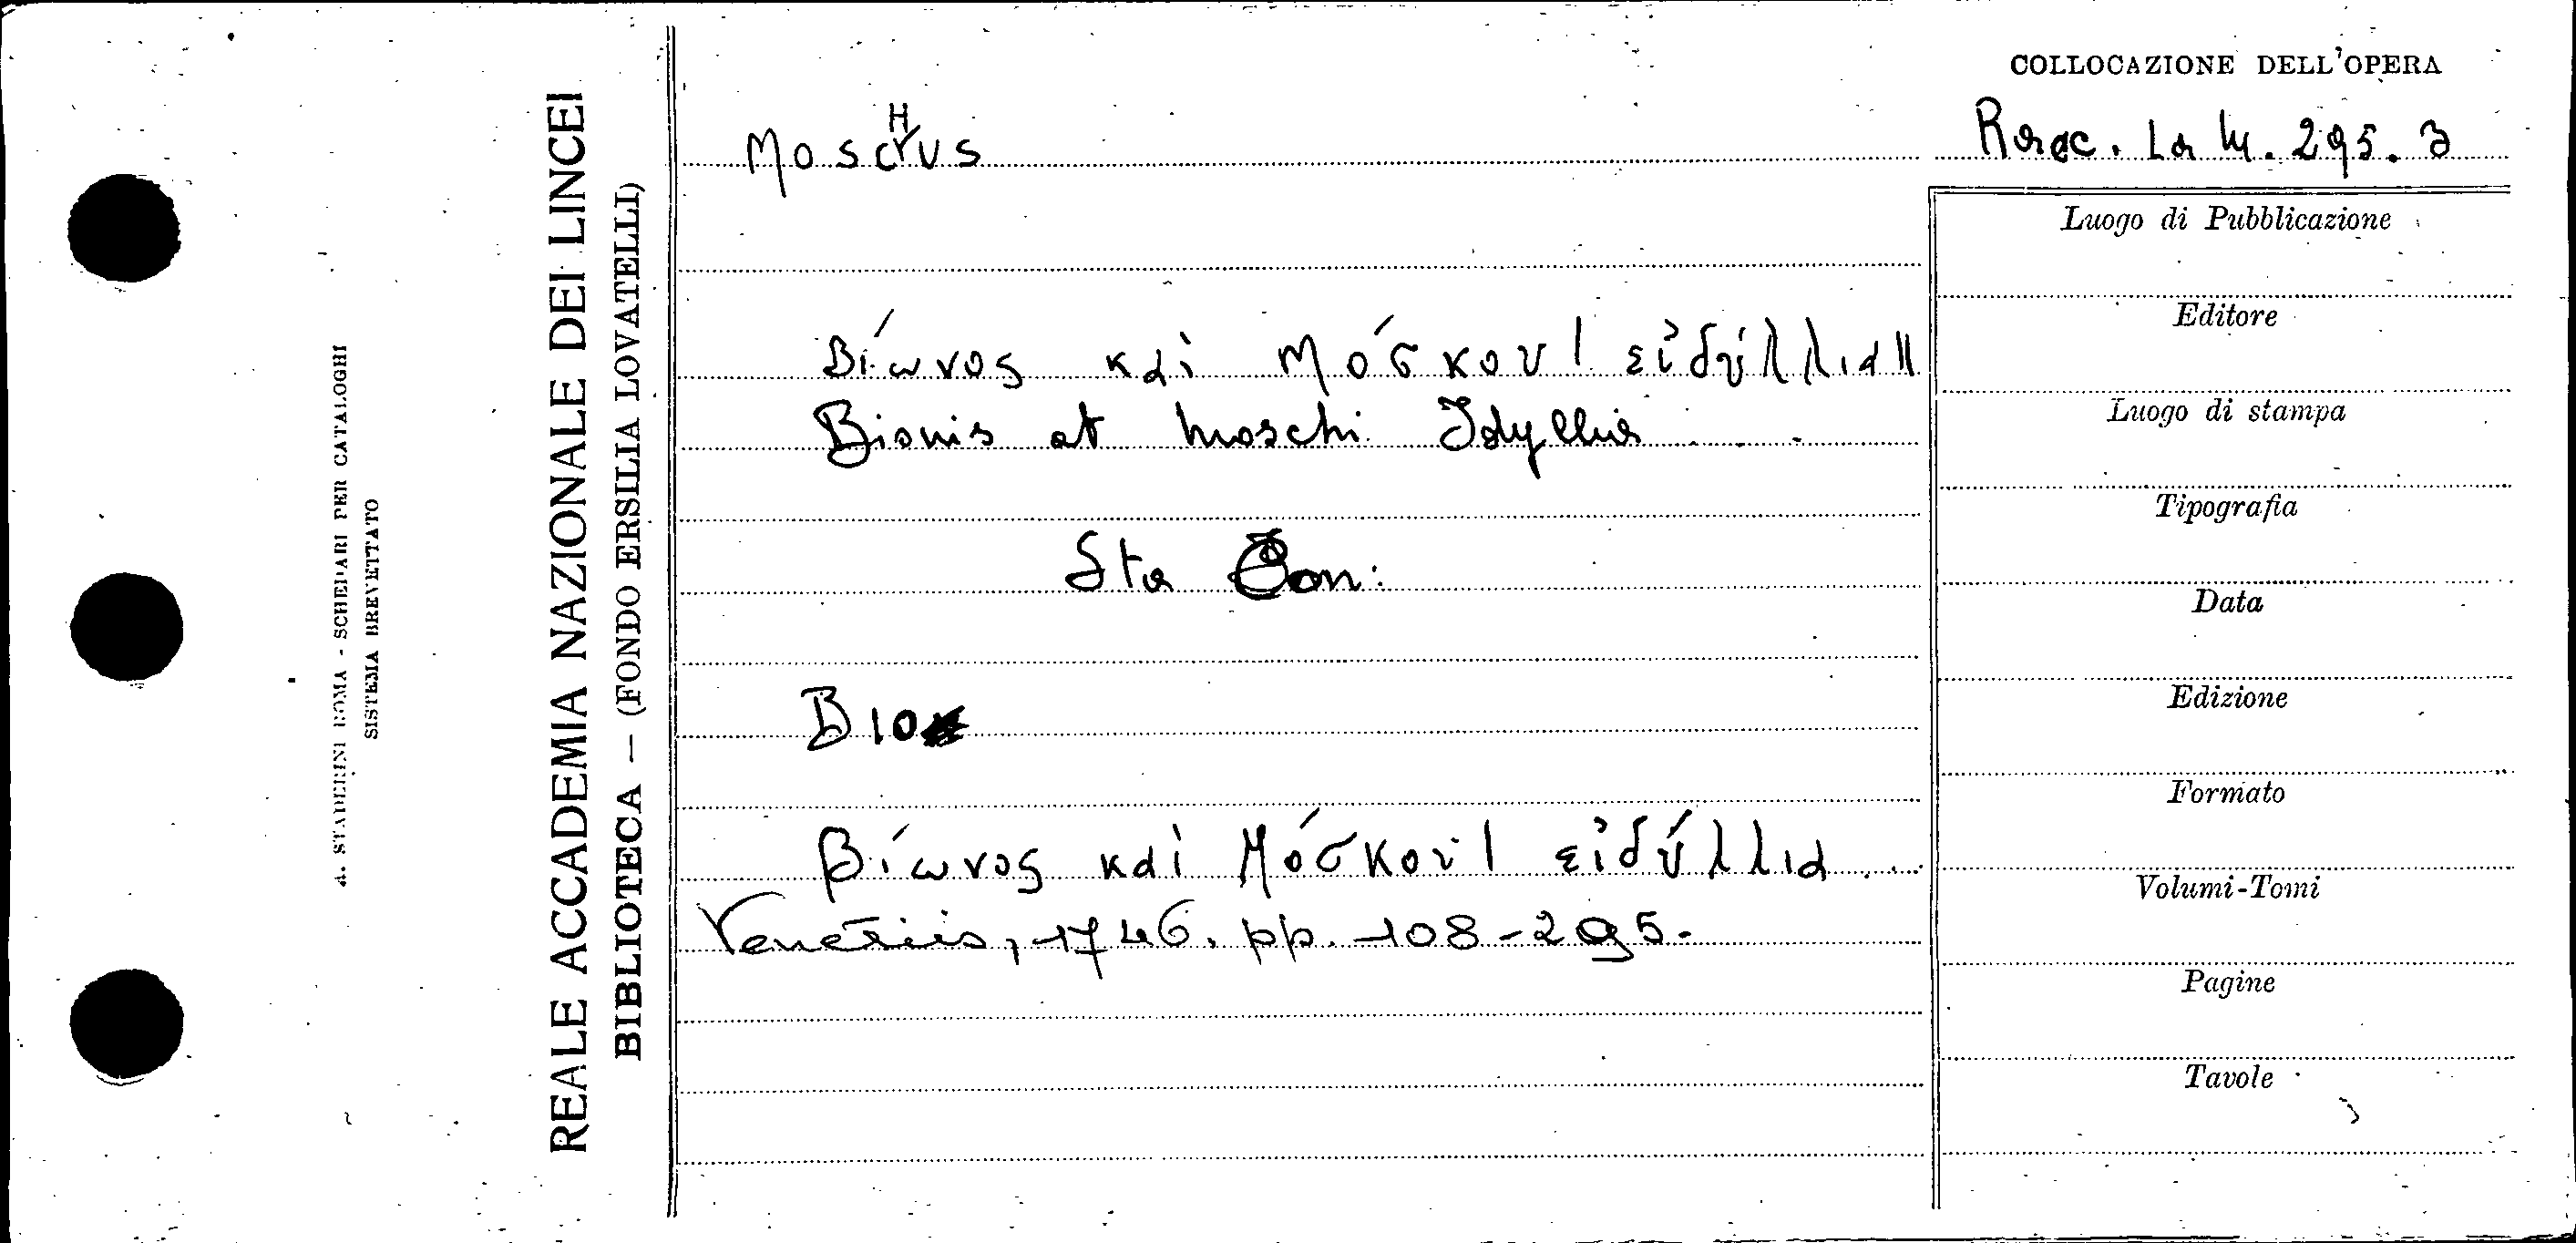 COLLOCAZIONE DELL'OPERA
MoscHus
Racc. La M. 295. 3
Βίωνος καὶ Μόσκου | εἰδύλλια ||
Bionis et Moschi Idyllia . . .
Sta
Bio
Βίωνος καὶ Μόσκου | εἰδύλλια . . .
Venetiis, 1746. pp. 108-295.
Luogo di Pubblicazione
Editore
Luogo di stampa
Tipografia
Data
Edizione
Formato
Volumi-Tomi
Pagine
Tavole
REALE ACCADEMIA NAZIONALE DEI LINCEI
BIBLIOTECA — (FONDO ERSILIA LOVATELLI)
A. STADERINI ROMA - SCHEDARI PER CATALOGHI
SISTEMA BREVETTATO